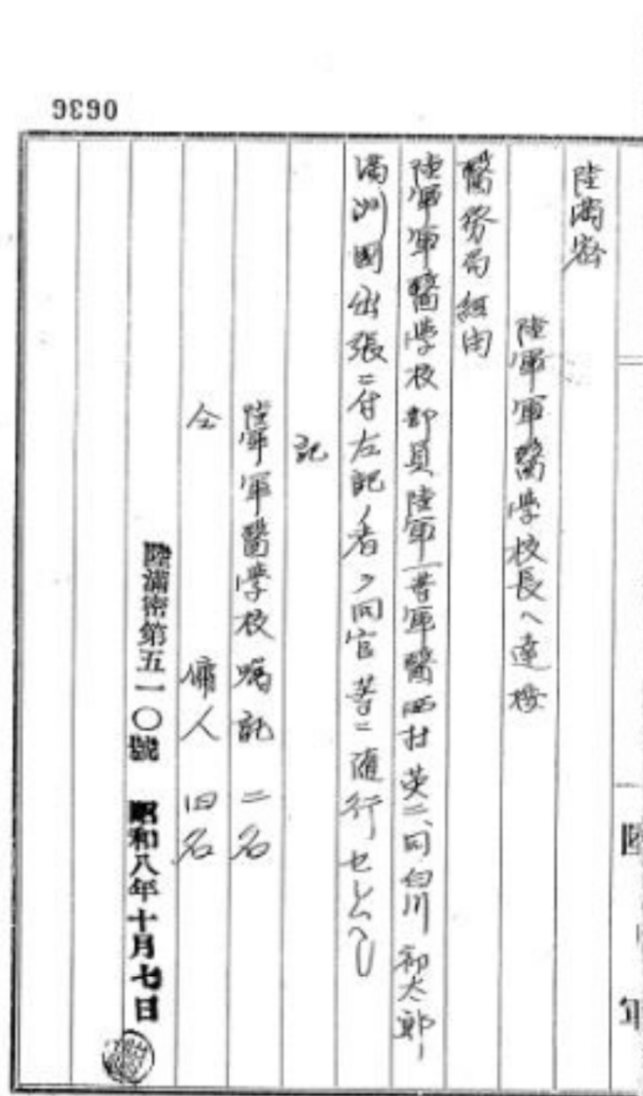 0636
陸満密
陸軍軍醫學校長ヘ達案
醫務局經由
陸軍軍醫學校部員陸軍一等軍醫西村英二、同白川初太郎ノ
満洲國出張ニ付左記ノ者ヲ同官等ニ随行セシムヘシ
記
陸軍軍醫學校嘱託二名
仝 傭人四名
陸滿密第五一〇號 昭和八年十月七日